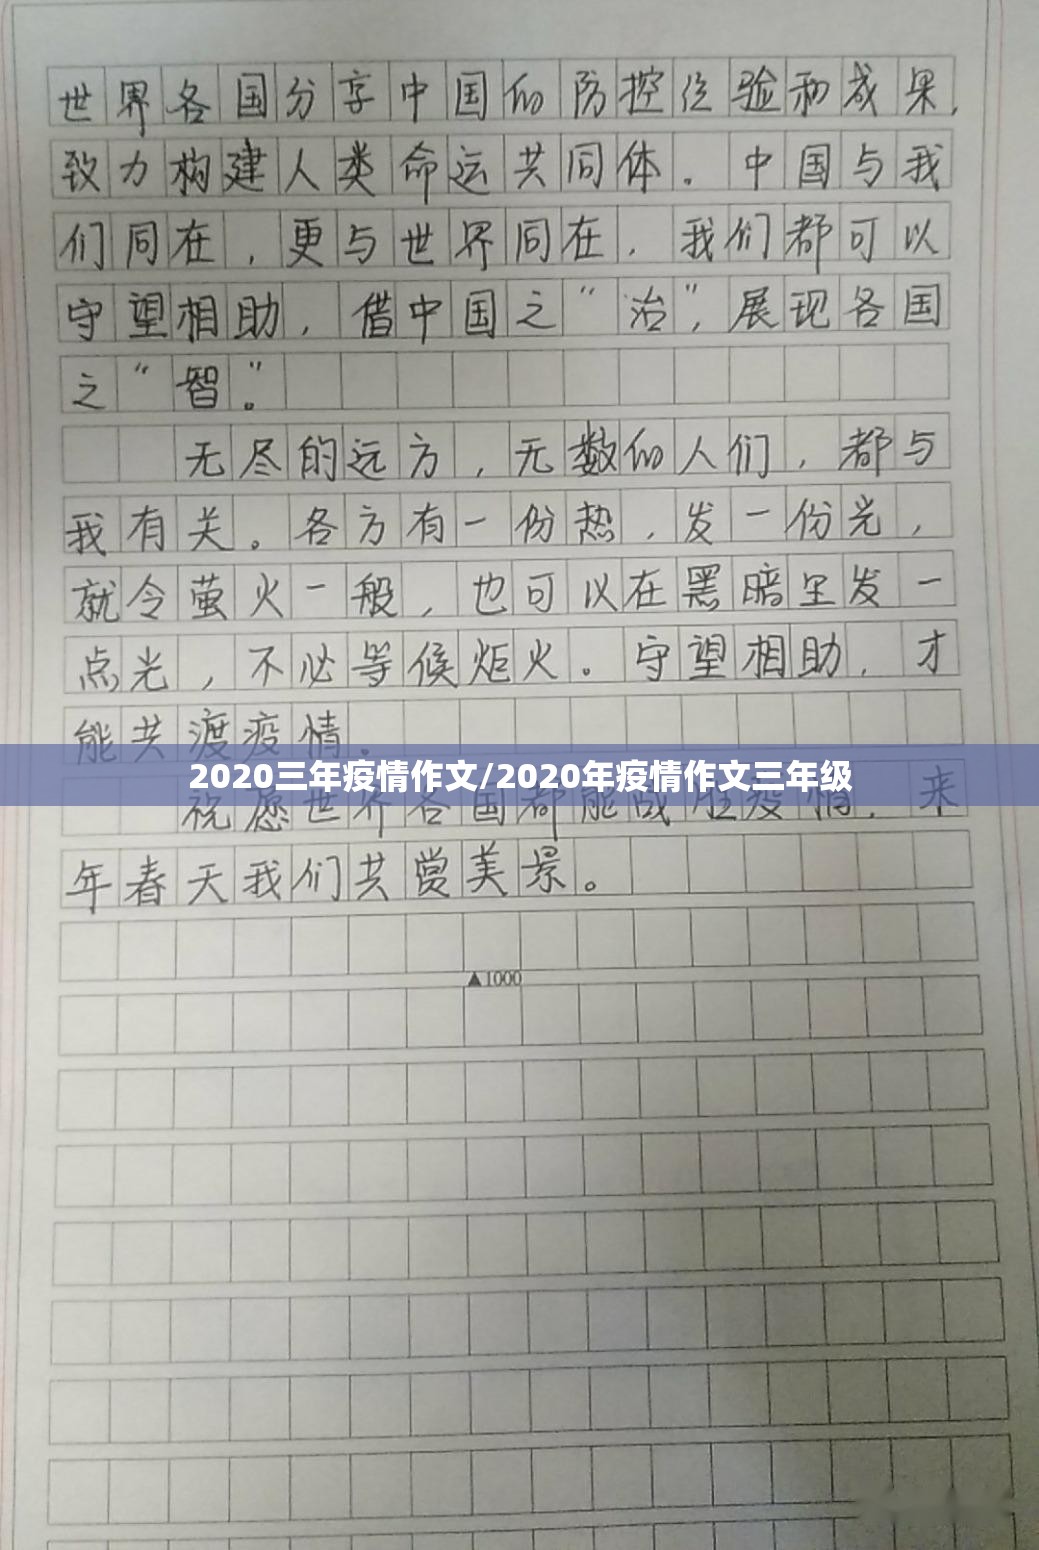 世界各国分享中国的防控经验和成果,
致力构建人类命运共同体。中国与我
们同在,更与世界同在,我们都可以
守望相助,借中国之“治”,展现各国
之“智”。
无尽的远方,无数的人们,都与
我有关。各方有一份热,发一份光,
就令萤火一般,也可以在黑暗里发一
点光,不必等候炬火。守望相助,才
能共渡疫情。
2020三年疫情作文/2020年疫情作文三年级
祝愿世界各国都能战胜疫情,来
年春天我们共赏美景。
▲1000